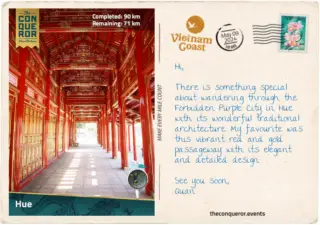 THE
CONQUEROR
Completed: 90 km
Remaining: 71 km
MAKE EVERY MILE COUNT
Hue
Vietnam
Coast
May 09
2024
Hi,
There is something special
about wandering through the
Forbidden Purple City in Hue
with its wonderful traditional
architecture. My favourite was
this vibrant red and gold
passageway with its elegant
and detailed design.
See you soon,
Quan
theconqueror.events